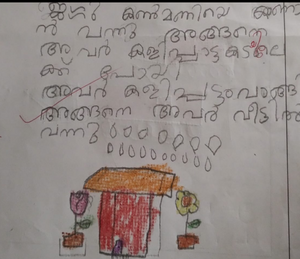 കൺമണിയെ
ൻ വന്നു അങ്ങനെ
അവർ കളിപ്പാട്ടകടയിലേ
ക്ക് പോയി
അവർ കളിപ്പാട്ടം വാങ്ങി
അങ്ങനെ അവർ വീട്ടിൽ
വന്നു